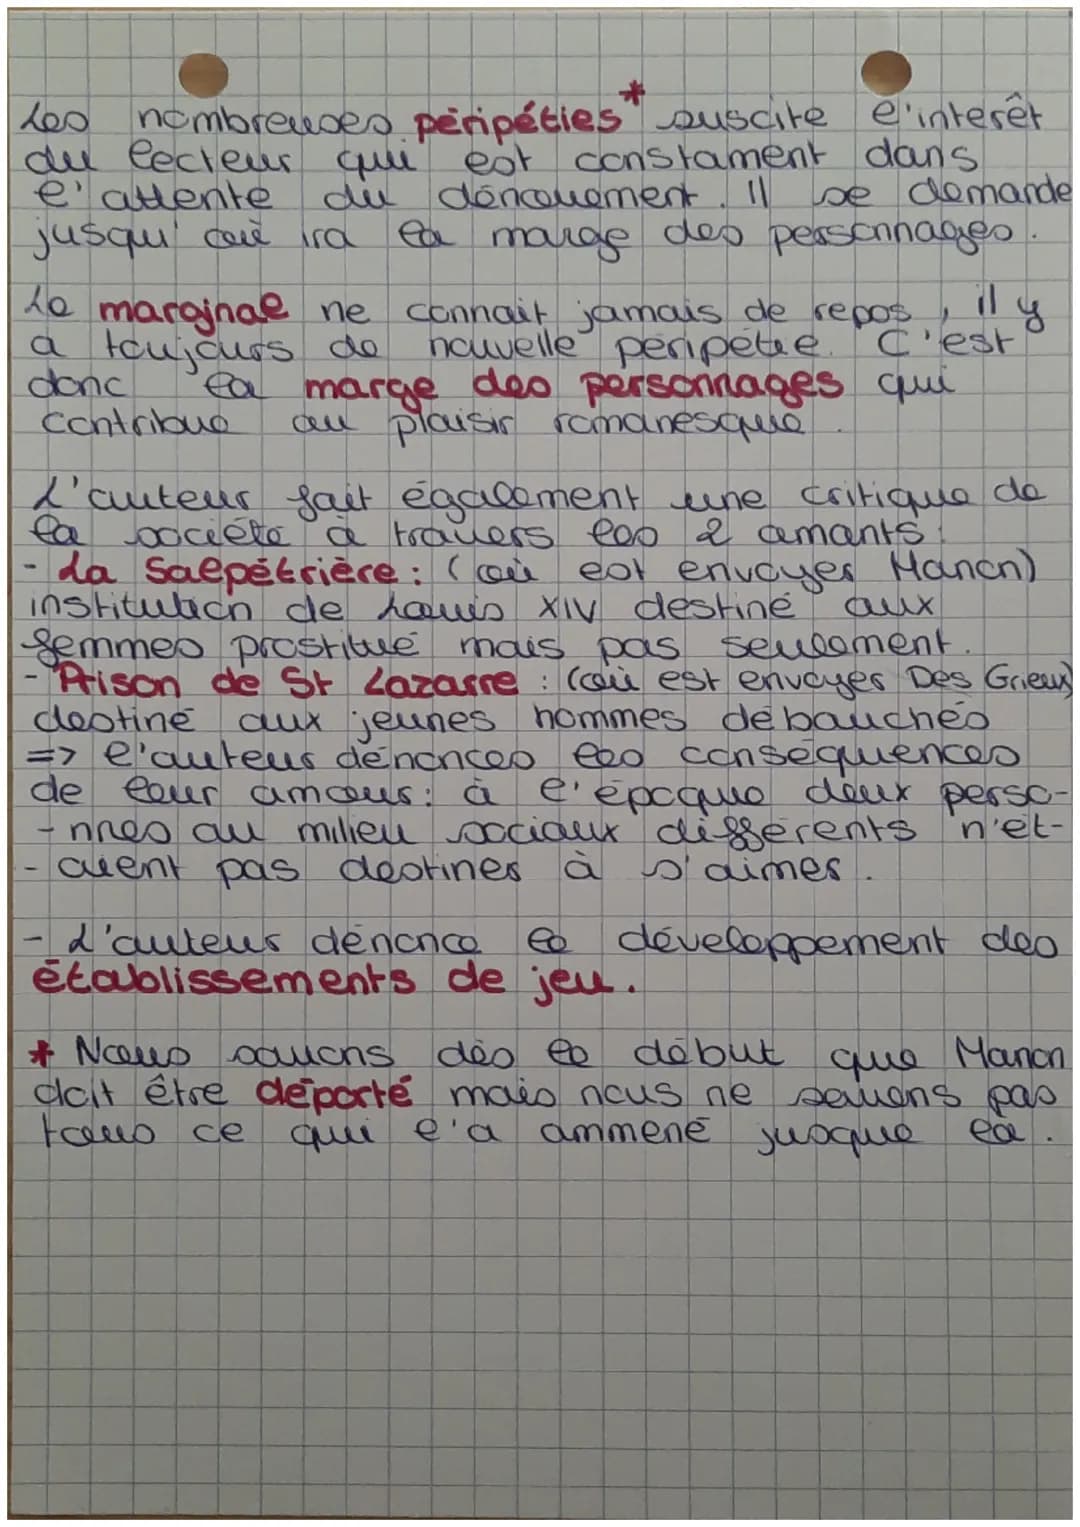 Les nombreuses péripéties* suscite l'interêt
du lecteur qui est constament dans
l'attente du dénouement. Il se demande
jusqu'où ira la marge des personnages.
Le marginal ne connait jamais de repos, il y
a toujours de nouvelle péripétie. C'est
donc la marge des personnages qui
contribue au plaisir romanesque.
L'auteur fait également une critique de
la société à travers les 2 amants:
- La Salpétrière : (où est envoyer Manon)
institution de Louis XIV destiné aux
femmes prostitué mais pas seulement.
- Prison de St Lazarre : (où est envoyer Des Grieux)
destiné aux jeunes hommes débauchés
=> l'auteur dénonces les conséquences
de leur amour: à l'époque deux perso-
-nnes au milieu sociaux différents n'ét-
-aient pas destines à s'aimer.
- L'auteur dénonce le développement des
établissements de jeu.
* Nous savons dès le début que Manon
doit être déporté mais nous ne savons pas
tous ce qui l'a ammené jusque la.